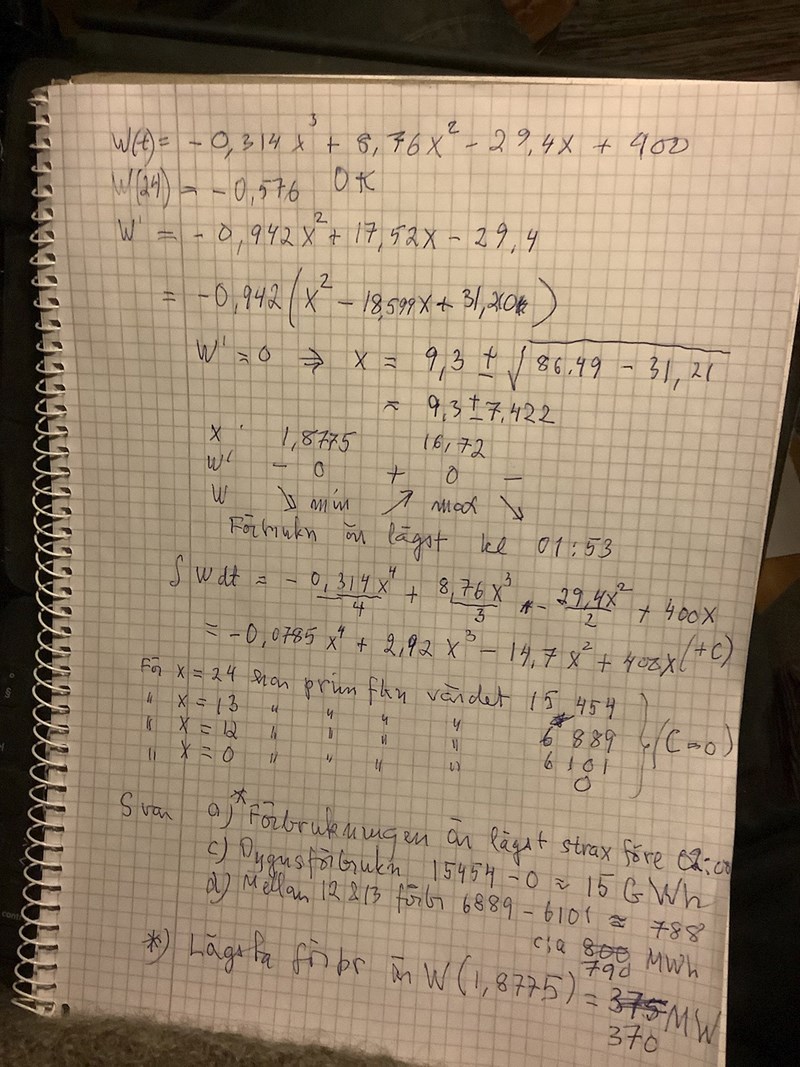 W(t) = - 0,314 x³ + 8,76x² - 29,4x + 400
W(24) = - 0,576 OK
W' = - 0,942x² + 17,52x - 29,4
= -0,942 (x² - 18,599x + 31,210)
W' = 0 ⇒ x = 9,3 ± √86,49 - 31,21
= 9,3 ± 7,422
x 1,8775 16,72
W' - 0 + 0 -
W ↘ min ↗ max ↘
Förbrukn är lägst kl 01:53
∫ W dt = - 0,314x⁴/4 + 8,76x³/3 - 29,4x²/2 + 400x
= -0,0785 x⁴ + 2,92 x³ - 14,7 x² + 400x (+C)
För x = 24 har prim fkn värdet 15 454
" x = 13 " " " " 6 889
" x = 12 " " " " 6 101
" x = 0 " " " " 0
(C=0)
Svar a)* Förbrukningen är lägst strax före 02:00
c) Dygnsförbrukn 15454 - 0 ≈ 15 GWh
d) Mellan 12 & 13 förbr 6889 - 6101 ≈ 788
c:a 790 MWh
*) Lägsta förbr är W(1,8775) = 370 MW